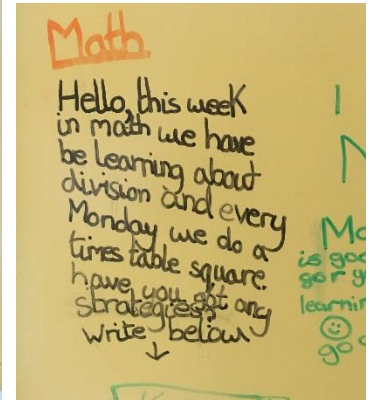 Math
Hello, this week
in math we have
be learning about
division and every
Monday we do a
times table square.
have you got any
strategies?
write below
↓
I
is
learnin